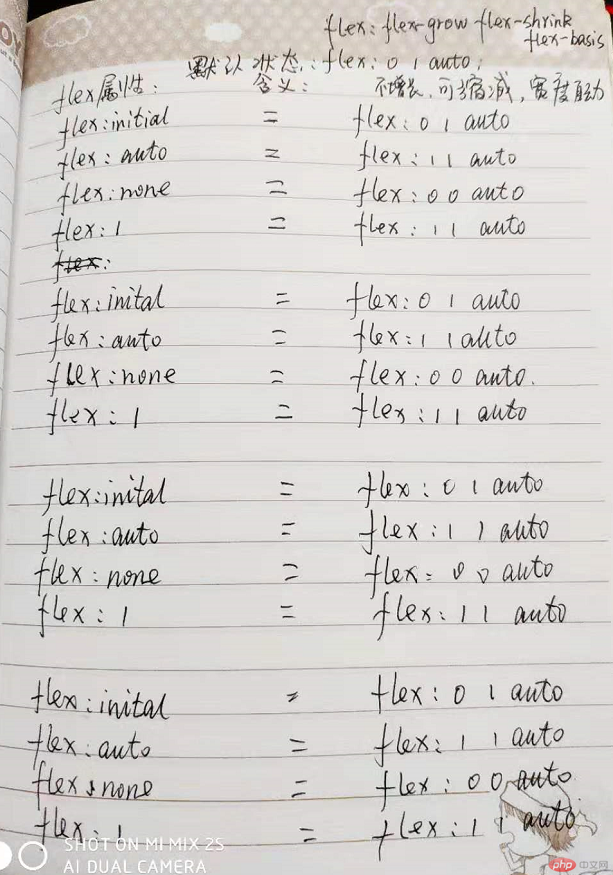 flex: flex-grow flex-shrink
flex-basis
默认状态: flex: 0 1 auto;
flex属性: 含义: 不增长,可缩减,宽度自动
flex:initial = flex: 0 1 auto
flex: auto = flex: 1 1 auto
flex:none = flex: 0 0 auto
flex: 1 = flex: 1 1 auto
flex:
flex:inital = flex: 0 1 auto
flex: auto = flex: 1 1 auto
flex:none = flex: 0 0 auto.
flex: 1 = flex: 1 1 auto
flex:inital = flex: 0 1 auto
flex: auto = flex: 1 1 auto
flex: none = flex: 0 0 auto
flex: 1 = flex: 1 1 auto
flex:inital = flex: 0 1 auto
flex: auto = flex: 1 1 auto
flex:none = flex: 0 0 auto
flex: 1 = flex: 1 1 auto
SHOT ON MI MIX 2S
AI DUAL CAMERA
php 中文网